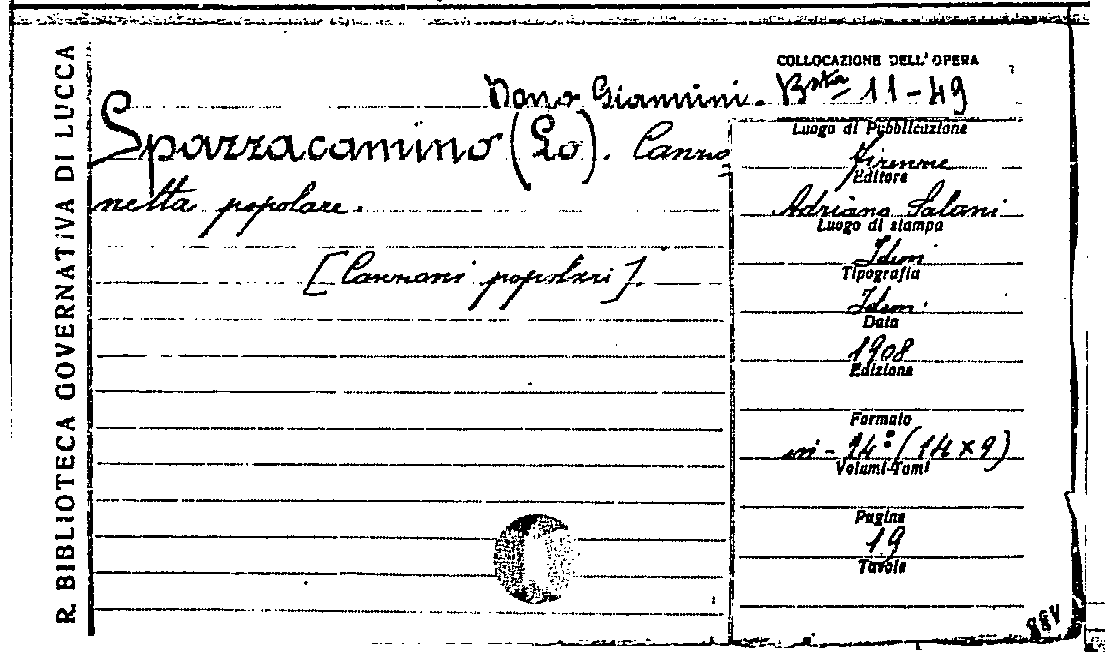 R. BIBLIOTECA GOVERNATIVA DI LUCCA
COLLOCAZIONE DELL'OPERA
Dono Giannini. Bsta 11-49
Spazzacamino (Lo). Canzo
netta popolare.
[Canzoni popolari].
Luogo di Pubblicazione
Firenze
Editore
Adriano Salani
Luogo di stampa
Idem
Tipografia
Idem
Data
1908
Edizione
Formato
in-14° (14x9)
Volumi-Tomi
Pagine
19
Tavole